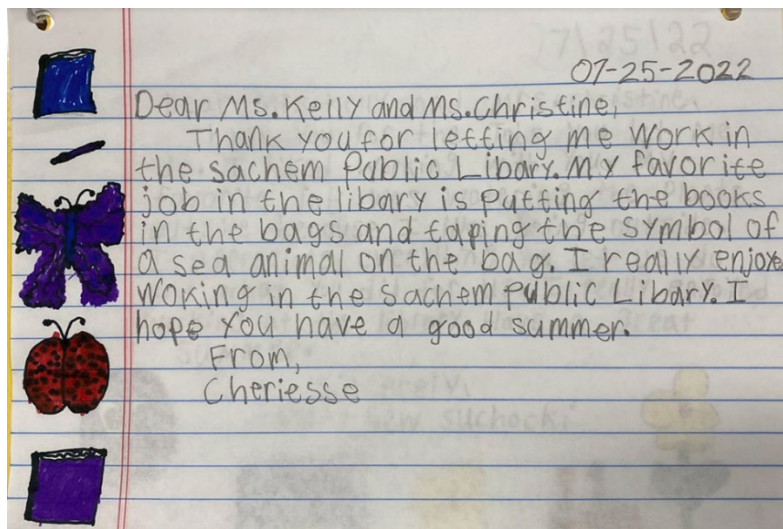 07-25-2022
Dear Ms. Kelly and Ms. Christine,
Thank you for letting me work in
the sachem Public Libary. My favorite
job in the libary is putting the books
in the bags and taping the symbol of
a sea animal on the bag. I really enjoye
woking in the sachem public Libary. I
hope you have a good summer.
From,
Cheriesse